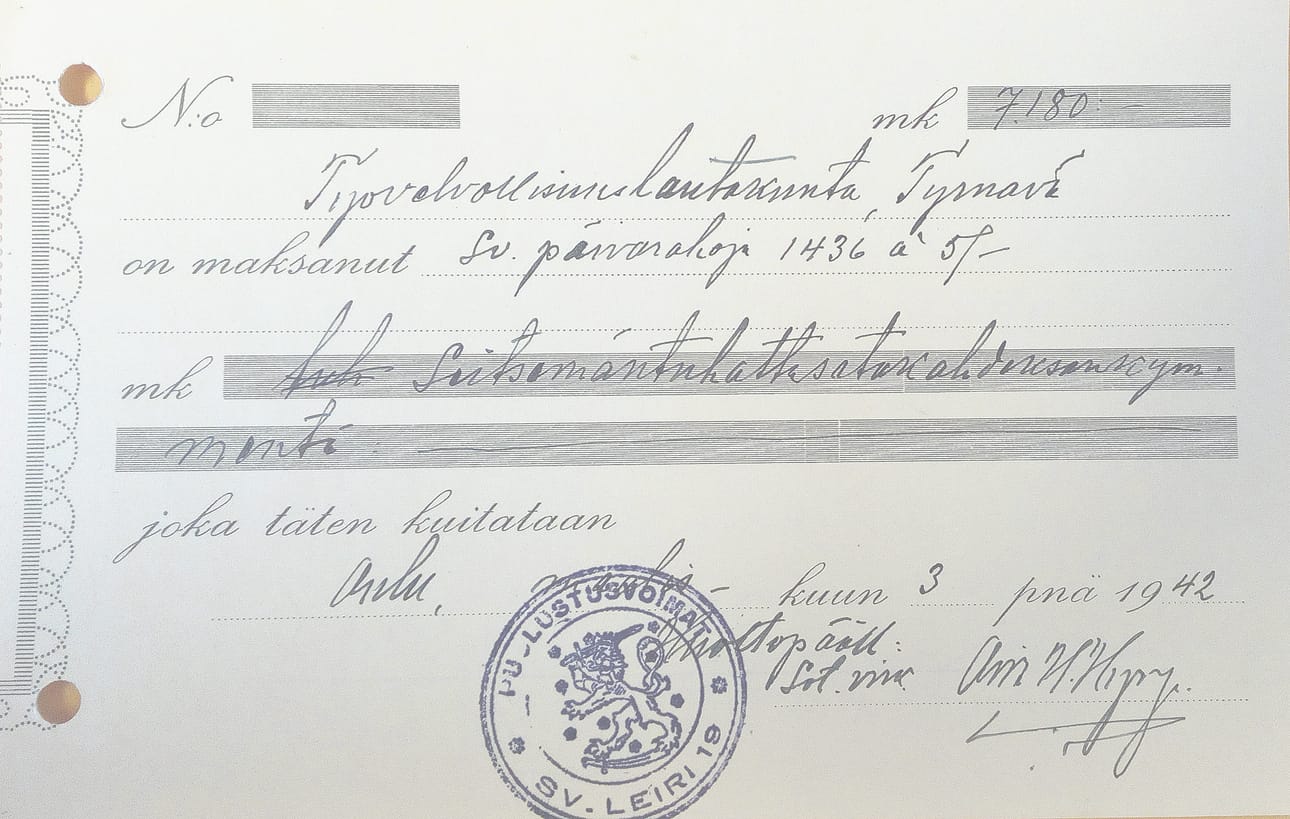 N:o mk 7.180: -
Työvelvollisuuslautakunta, Tyrnävä
on maksanut Sv. päivärahoja 1436 á 5/-
mk Seitsemäntuhattasatakahdeksankym-
mentä
joka täten kuitataan
Oulu, maalis- kuun 3 pnä 1942
Huoltopääll:
Sot. virk.
PUOLUSTUSVOIMAT
SV. LEIRI 19